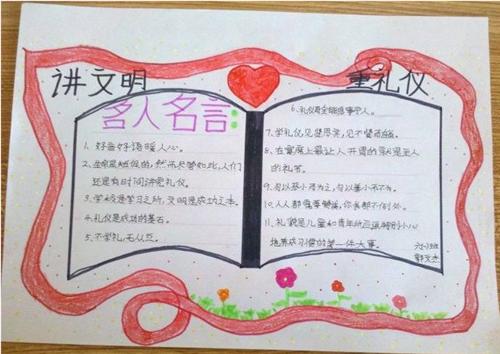 讲文明
重礼仪
名人名言:
1、好言好语暖人心。
2、生命是短促的,然而尽管如此,人们
还是有时间讲究礼仪。
3、学校是学习之所,文明是成功之本。
4、礼仪是成功的基石。
5、不学礼,无以立。
6、礼仪周全能息事宁人。
7、学礼仪,见贤思齐,见不贤而自省。
8、在宴席上最让人开胃的就是主人
的礼节。
9、勿以恶小而为之,勿以善小而不为。
10、人人都需尊敬,你我都不例外。
11、礼貌是儿童和青年所应该特别小心
地养成习惯的第一件大事。